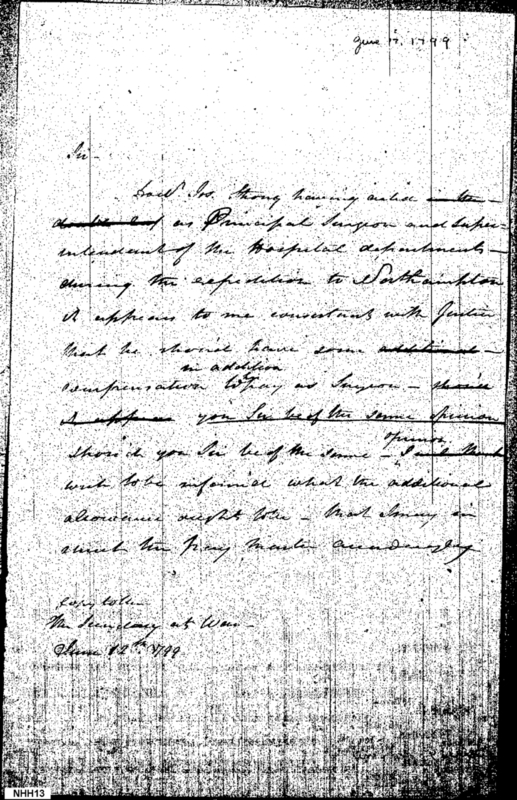 June 17. 1799
Sir
Doctr Jos. Strong having acted in the
double as Principal Surgeon and Super-
intendant of the Hospital departments -
during the expedition to Northampton
it appears to me consistant with Justice
that he should have some additional -
in addition
compensation to pay as Surgeon -
it appear you Sir be of the same opinion
opinion
should you Sir be of the same - I
wish to be informed what the additional
allowance ought to be - that I may in
struct the pay master accordingly
Copy to the
The Secretary at War -
June 12th 1799
NHH13